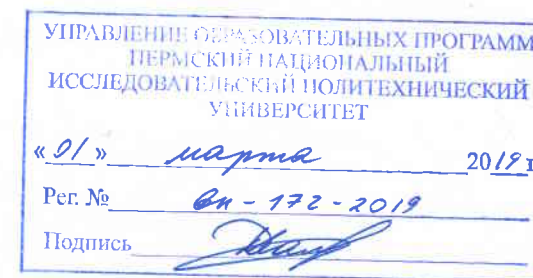 УПРАВЛЕНИЕ ОБРАЗОВАТЕЛЬНЫХ ПРОГРАММ
ПЕРМСКИЙ НАЦИОНАЛЬНЫЙ
ИССЛЕДОВАТЕЛЬСКИЙ ПОЛИТЕХНИЧЕСКИЙ
УНИВЕРСИТЕТ
«01» марта 2019г
Рег. № вн-172-2019
Подпись